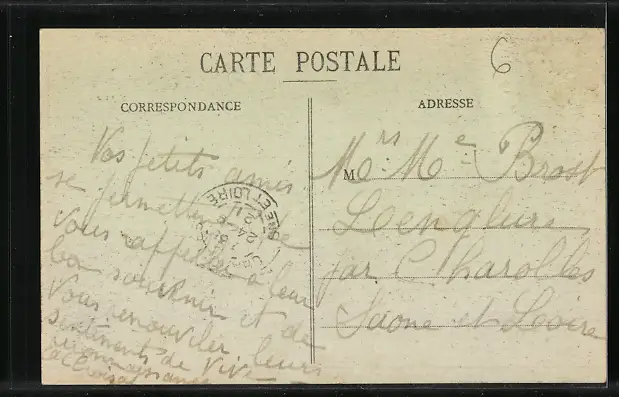 CARTE POSTALE
6
CORRESPONDANCE
ADRESSE
Vos petits amis
se permettent de
vous rappeler à leur
bon souvenir et de
vous renouveler leurs
sentiments de vive
reconnaissance
ET LOIRE
M Mrs Me Brost
par Charolles
Saone et Loire